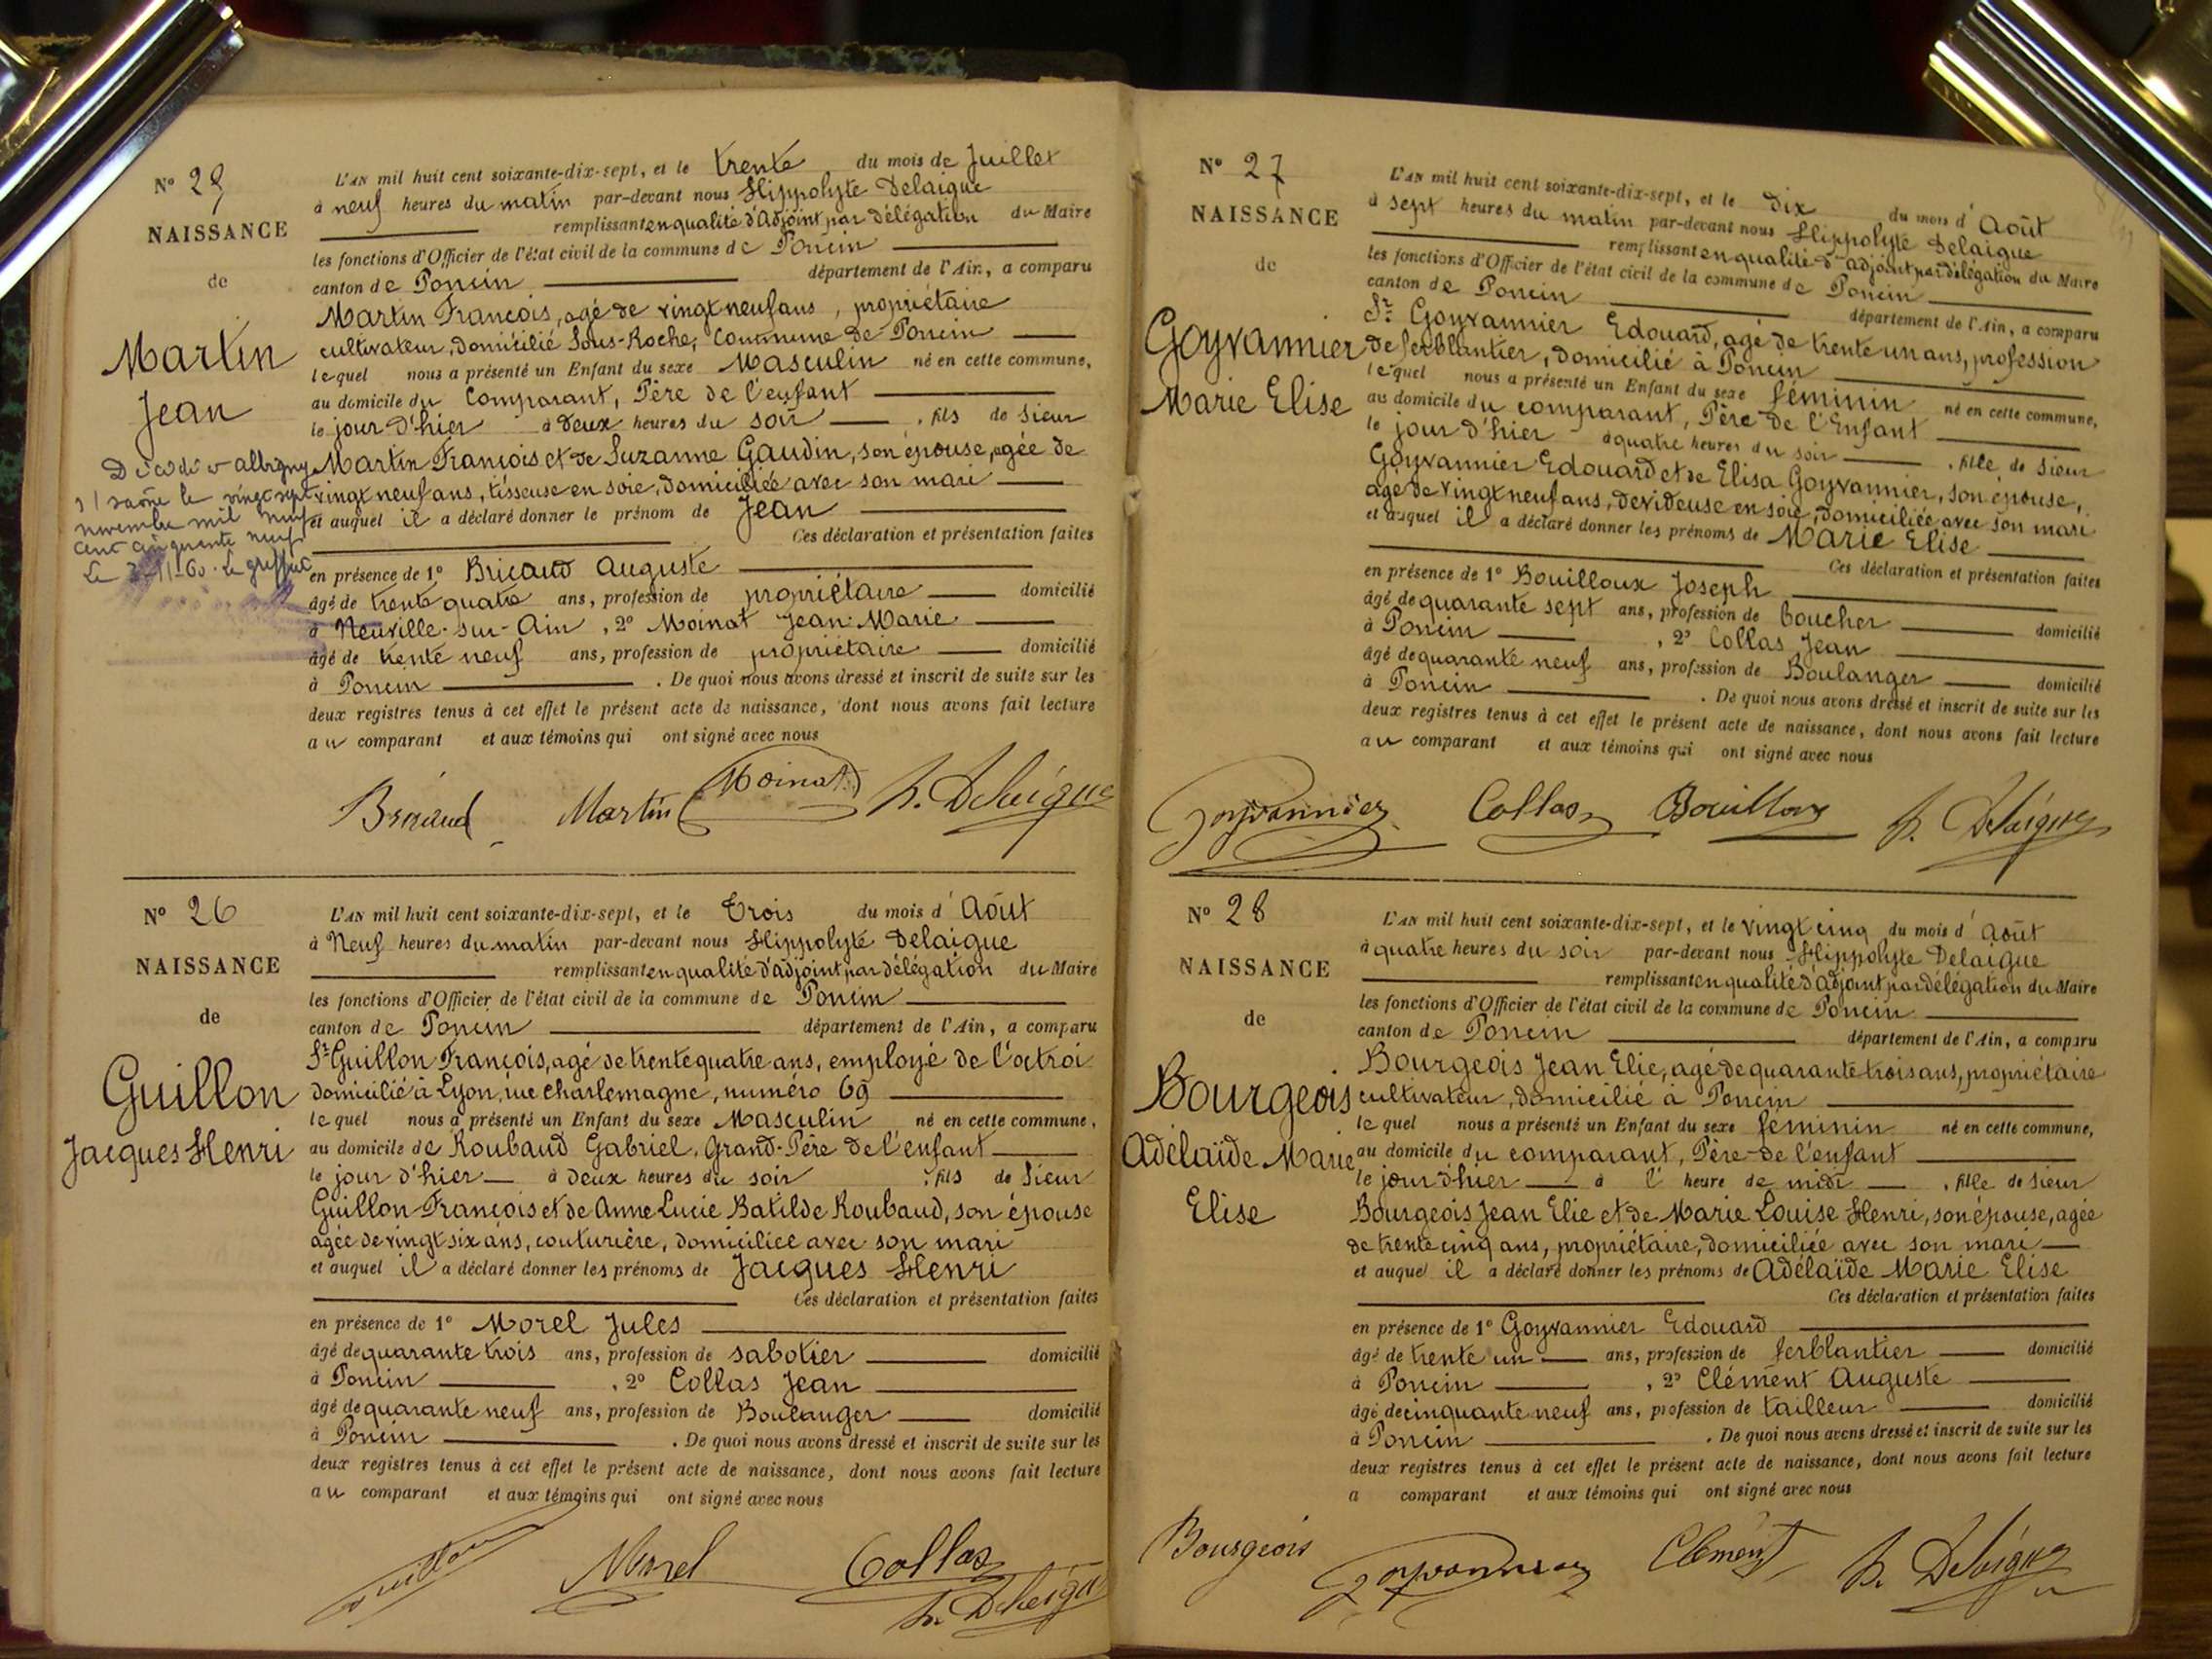 N° 25
NAISSANCE
de
Martin
Jean
Décédé à Albigny
s/ Saône le vingt sept
novembre mil neuf
cent cinquante neuf
Le 3-11-60. Le greffier
L'AN mil huit cent soixante-dix-sept, et le trente du mois de Juillet
à neuf heures du matin par-devant nous Hippolyte Delaigue
remplissant en qualité d'adjoint par délégation du Maire
les fonctions d'Officier de l'état civil de la commune de Poncin
canton de Poncin département de l'Ain, a comparu
Martin François, agé de vingt neuf ans, propriétaire
cultivateur, domicilié Sous-Roche, Commune de Poncin
lequel nous a présenté un Enfant du sexe Masculin né en cette commune,
au domicile du Comparant, Père de l'enfant
le jour d'hier à deux heures du soir, fils de Sieur
Martin François et de Suzanne Gaudin, son épouse, agée de
vingt neuf ans, tisseuse en soie, domiciliée avec son mari
et auquel il a déclaré donner le prénom de Jean
Ces déclaration et présentation faites
en présence de 1° Bricaud Auguste
âgé de trente quatre ans, profession de propriétaire domicilié
à Neuville-sur-Ain, 2° Moinat Jean-Marie
âgé de trente neuf ans, profession de propriétaire domicilié
à Poncin. De quoi nous avons dressé et inscrit de suite sur les
deux registres tenus à cet effet le présent acte de naissance, dont nous avons fait lecture
au comparant et aux témoins qui ont signé avec nous
Bricaud Martin Moinat h. Delaigue
N° 26
NAISSANCE
de
Guillon
Jacques Henri
L'AN mil huit cent soixante-dix-sept, et le Trois du mois d'Août
à Neuf heures du matin par-devant nous Hippolyte Delaigue
remplissant en qualité d'adjoint par délégation du Maire
les fonctions d'Officier de l'état civil de la commune de Poncin
canton de Poncin département de l'Ain, a comparu
Sr Guillon François, agé de trente quatre ans, employé de l'octroi
domicilié à Lyon, rue Charlemagne, numéro 69
lequel nous a présenté un Enfant du sexe Masculin né en cette commune,
au domicile de Roubaud Gabriel, Grand-Père de l'enfant
le jour d'hier à deux heures du soir, fils de Sieur
Guillon François et de Anne Lucie Batilde Roubaud, son épouse
agée de vingt six ans, couturière, domiciliée avec son mari
et auquel il a déclaré donner les prénoms de Jacques Henri
Ces déclaration et présentation faites
en présence de 1° Morel Jules
âgé de quarante trois ans, profession de sabotier domicilié
à Poncin, 2° Collas Jean
âgé de quarante neuf ans, profession de Boulanger domicilié
à Poncin. De quoi nous avons dressé et inscrit de suite sur les
deux registres tenus à cet effet le présent acte de naissance, dont nous avons fait lecture
au comparant et aux témoins qui ont signé avec nous
Guillon Morel Collas
h. Delaigue
N° 27
NAISSANCE
de
Goyvannier
Marie Elise
L'AN mil huit cent soixante-dix-sept, et le dix du mois d'Août
à sept heures du matin par-devant nous Hippolyte Delaigue
remplissant en qualité d'adjoint par délégation du Maire
les fonctions d'Officier de l'état civil de la commune de Poncin
canton de Poncin département de l'Ain, a comparu
Sr Goyvannier Edouard, agé de trente un ans, profession
de ferblantier, domicilié à Poncin
lequel nous a présenté un Enfant du sexe féminin né en cette commune,
au domicile du comparant, Père de l'Enfant
le jour d'hier à quatre heures du soir, fille de Sieur
Goyvannier Edouard et de Elisa Goyvannier, son épouse,
agé de vingt neuf ans, devideuse en soie, domiciliée avec son mari
et auquel il a déclaré donner les prénoms de Marie Elise
Ces déclaration et présentation faites
en présence de 1° Bouilloux Joseph
âgé de quarante sept ans, profession de boucher domicilié
à Poncin, 2° Collas Jean
âgé de quarante neuf ans, profession de Boulanger domicilié
à Poncin. De quoi nous avons dressé et inscrit de suite sur les
deux registres tenus à cet effet le présent acte de naissance, dont nous avons fait lecture
au comparant et aux témoins qui ont signé avec nous
Goyvannier Collas Bouilloux h. Delaigue
N° 28
NAISSANCE
de
Bourgeois
Adélaïde Marie
Elise
L'AN mil huit cent soixante-dix-sept, et le vingt cinq du mois d'août
à quatre heures du soir par-devant nous Hippolyte Delaigue
remplissant en qualité d'adjoint par délégation du Maire
les fonctions d'Officier de l'état civil de la commune de Poncin
canton de Poncin département de l'Ain, a comparu
Bourgeois Jean Elie, agé de quarante trois ans, propriétaire
cultivateur, domicilié à Poncin
lequel nous a présenté un Enfant du sexe féminin né en cette commune,
au domicile du comparant, Père de l'enfant
le jour d'hier à l'heure de midi, fille de Sieur
Bourgeois Jean Elie et de Marie Louise Henri, son épouse, agée
de trente cinq ans, propriétaire, domiciliée avec son mari
et auquel il a déclaré donner les prénoms de Adélaïde Marie Elise
Ces déclaration et présentation faites
en présence de 1° Goyvannier Edouard
âgé de trente un ans, profession de ferblantier domicilié
à Poncin, 2° Clément Auguste
âgé de cinquante neuf ans, profession de tailleur domicilié
à Poncin. De quoi nous avons dressé et inscrit de suite sur les
deux registres tenus à cet effet le présent acte de naissance, dont nous avons fait lecture
a comparant et aux témoins qui ont signé avec nous
Bourgeois Goyvannier Clément h. Delaigue